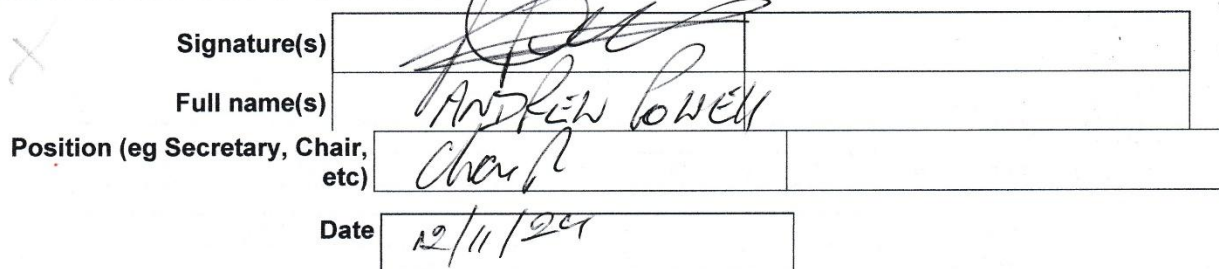 Signature(s)
Full name(s) ANDREW POWELL
Position (eg Secretary, Chair,
etc) Chair
Date 12/11/24